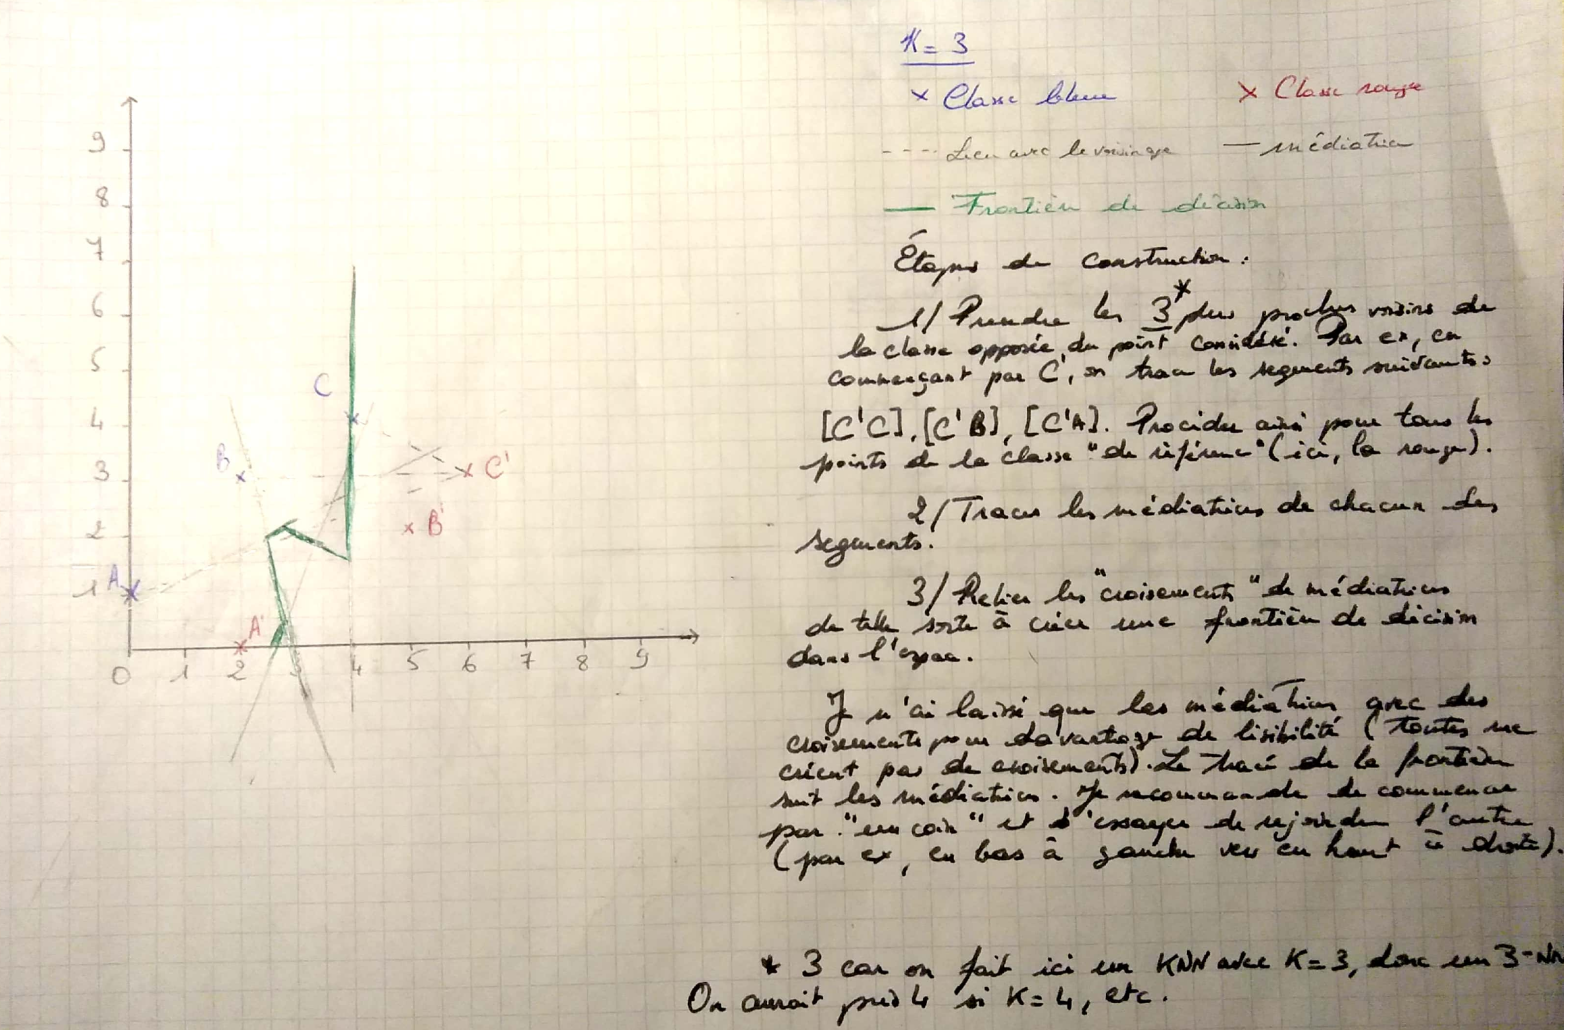 K = 3
× Classe bleue
× Classe rouge
Lien avec le voisinage
médiatrice
Frontière de décision
Étapes de construction :
1/ Prendre les 3* plus proches voisins de
la classe opposée du point considéré. Par ex, en
commençant par C', on trace les segments suivants :
[C'C], [C'B], [C'A]. Procéder ainsi pour tous les
points de la classe "de référence" (ici, la rouge).
2/ Tracer les médiatrices de chacun des
segments.
3/ Relier les "croisements" de médiatrices
de telle sorte à créer une frontière de décision
dans l'espace.
Je n'ai laissé que les médiatrices avec des
croisements pour davantage de lisibilité (toutes ne
créent pas de croisements). Le tracé de la frontière
suit les médiatrices. Je recommande de commencer
par "un coin" et d'essayer de rejoindre l'autre
(par ex, en bas à gauche vers en haut à droite).
* 3 car on fait ici un KNN avec K = 3, donc un 3-NN
On aurait pris 4 si K = 4, etc.
9
8
7
6
5
C
4
B
3
C'
2
B'
1
A
A'
0 1 2 3 4 5 6 7 8 9